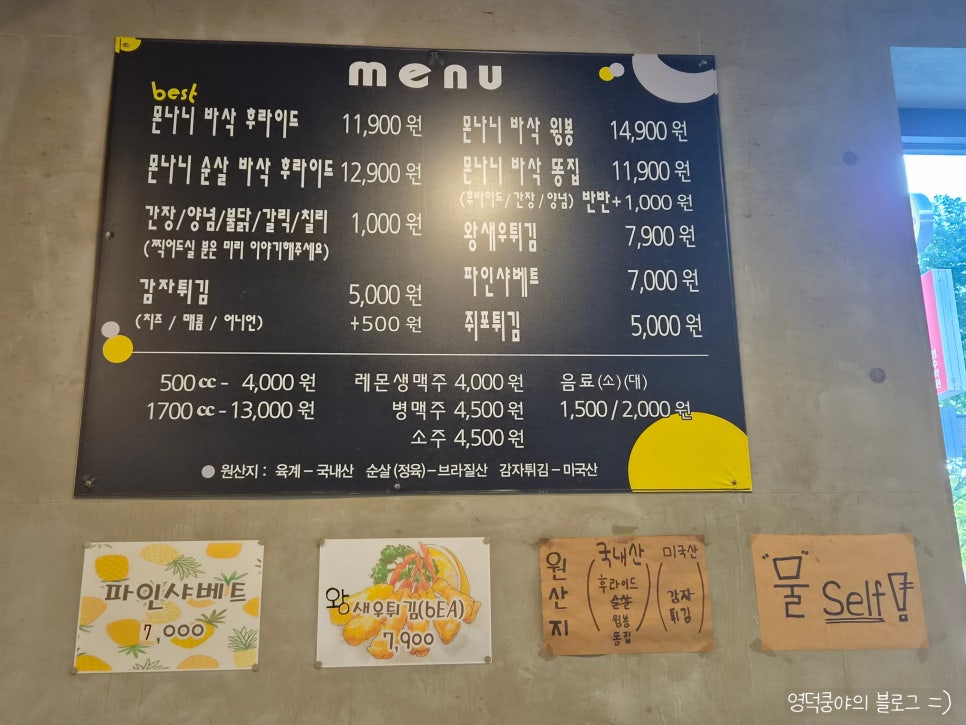 menu
best
몬나니 바삭 후라이드 11,900 원
몬나니 순살 바삭 후라이드 12,900 원
간장/양념/불닭/갈릭/칠리 1,000 원
(찍어드실 분은 미리 이야기해주세요)
감자튀김 5,000 원
(치즈 / 매콤 / 어니언) +500 원
몬나니 바삭 윙봉 14,900 원
몬나니 바삭 똥집 11,900 원
(후라이드/간장/양념) 반반+1,000 원
왕새우튀김 7,900 원
파인샤베트 7,000 원
쥐포튀김 5,000 원
500 cc - 4,000 원
1700 cc - 13,000 원
레몬생맥주 4,000 원
병맥주 4,500 원
소주 4,500 원
음료(소)(대)
1,500 / 2,000 원
원산지 : 육계 – 국내산 순살(정육) – 브라질산 감자튀김 – 미국산
파인샤베트
7,000
왕새우튀김(6EA)
7,900
원산지
국내산
(후라이드
순살
윙봉
똥집)
미국산
(감자
튀김)
"물" Self!
영덕쿵야의 블로그 =)